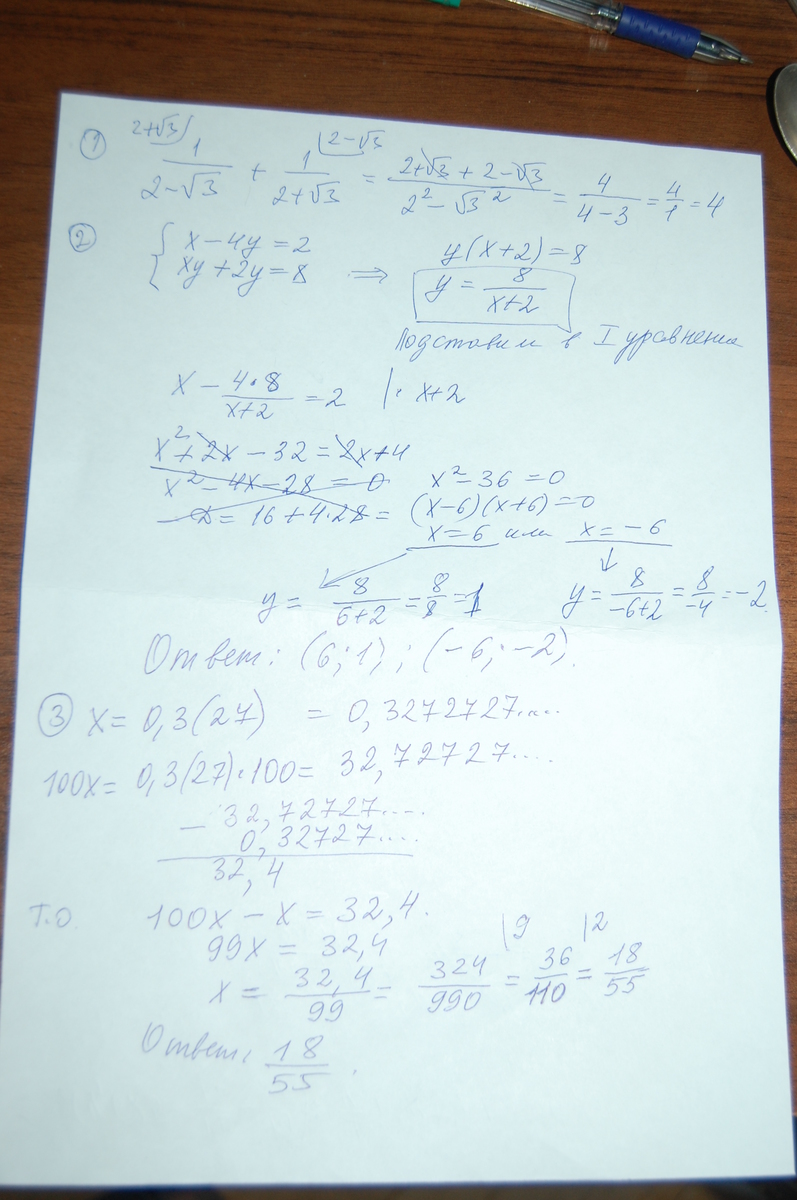 ① 2+√3) 1/(2-√3) + 1/(2+√3) |2-√3 = (2+√3 + 2-√3)/(2² - √3²) = 4/(4-3) = 4/1 = 4
② { x-4y=2 y(x+2)=8
xy+2y=8 ⇒ y = 8/(x+2)
Подставим в I уравнение
x - 4·8/(x+2) = 2 |· x+2
x²+2x-32=2x+4
x²-4x-28=0 x²-36=0
D=16+4·28= (x-6)(x+6)=0
x=6 или x=-6
y= 8/(6+2) = 8/8 = 1 y= 8/(-6+2) = 8/-4 = -2.
Ответ: (6;1); (-6;-2).
③ x= 0,3(27) = 0,3272727....
100x= 0,3(27)·100= 32,72727....
- 32,72727....
0,32727....
32,4
Т.О. 100x-x=32,4.
99x=32,4 |9 |2
x= 32,4/99 = 324/990 = 36/110 = 18/55
Ответ: 18/55.